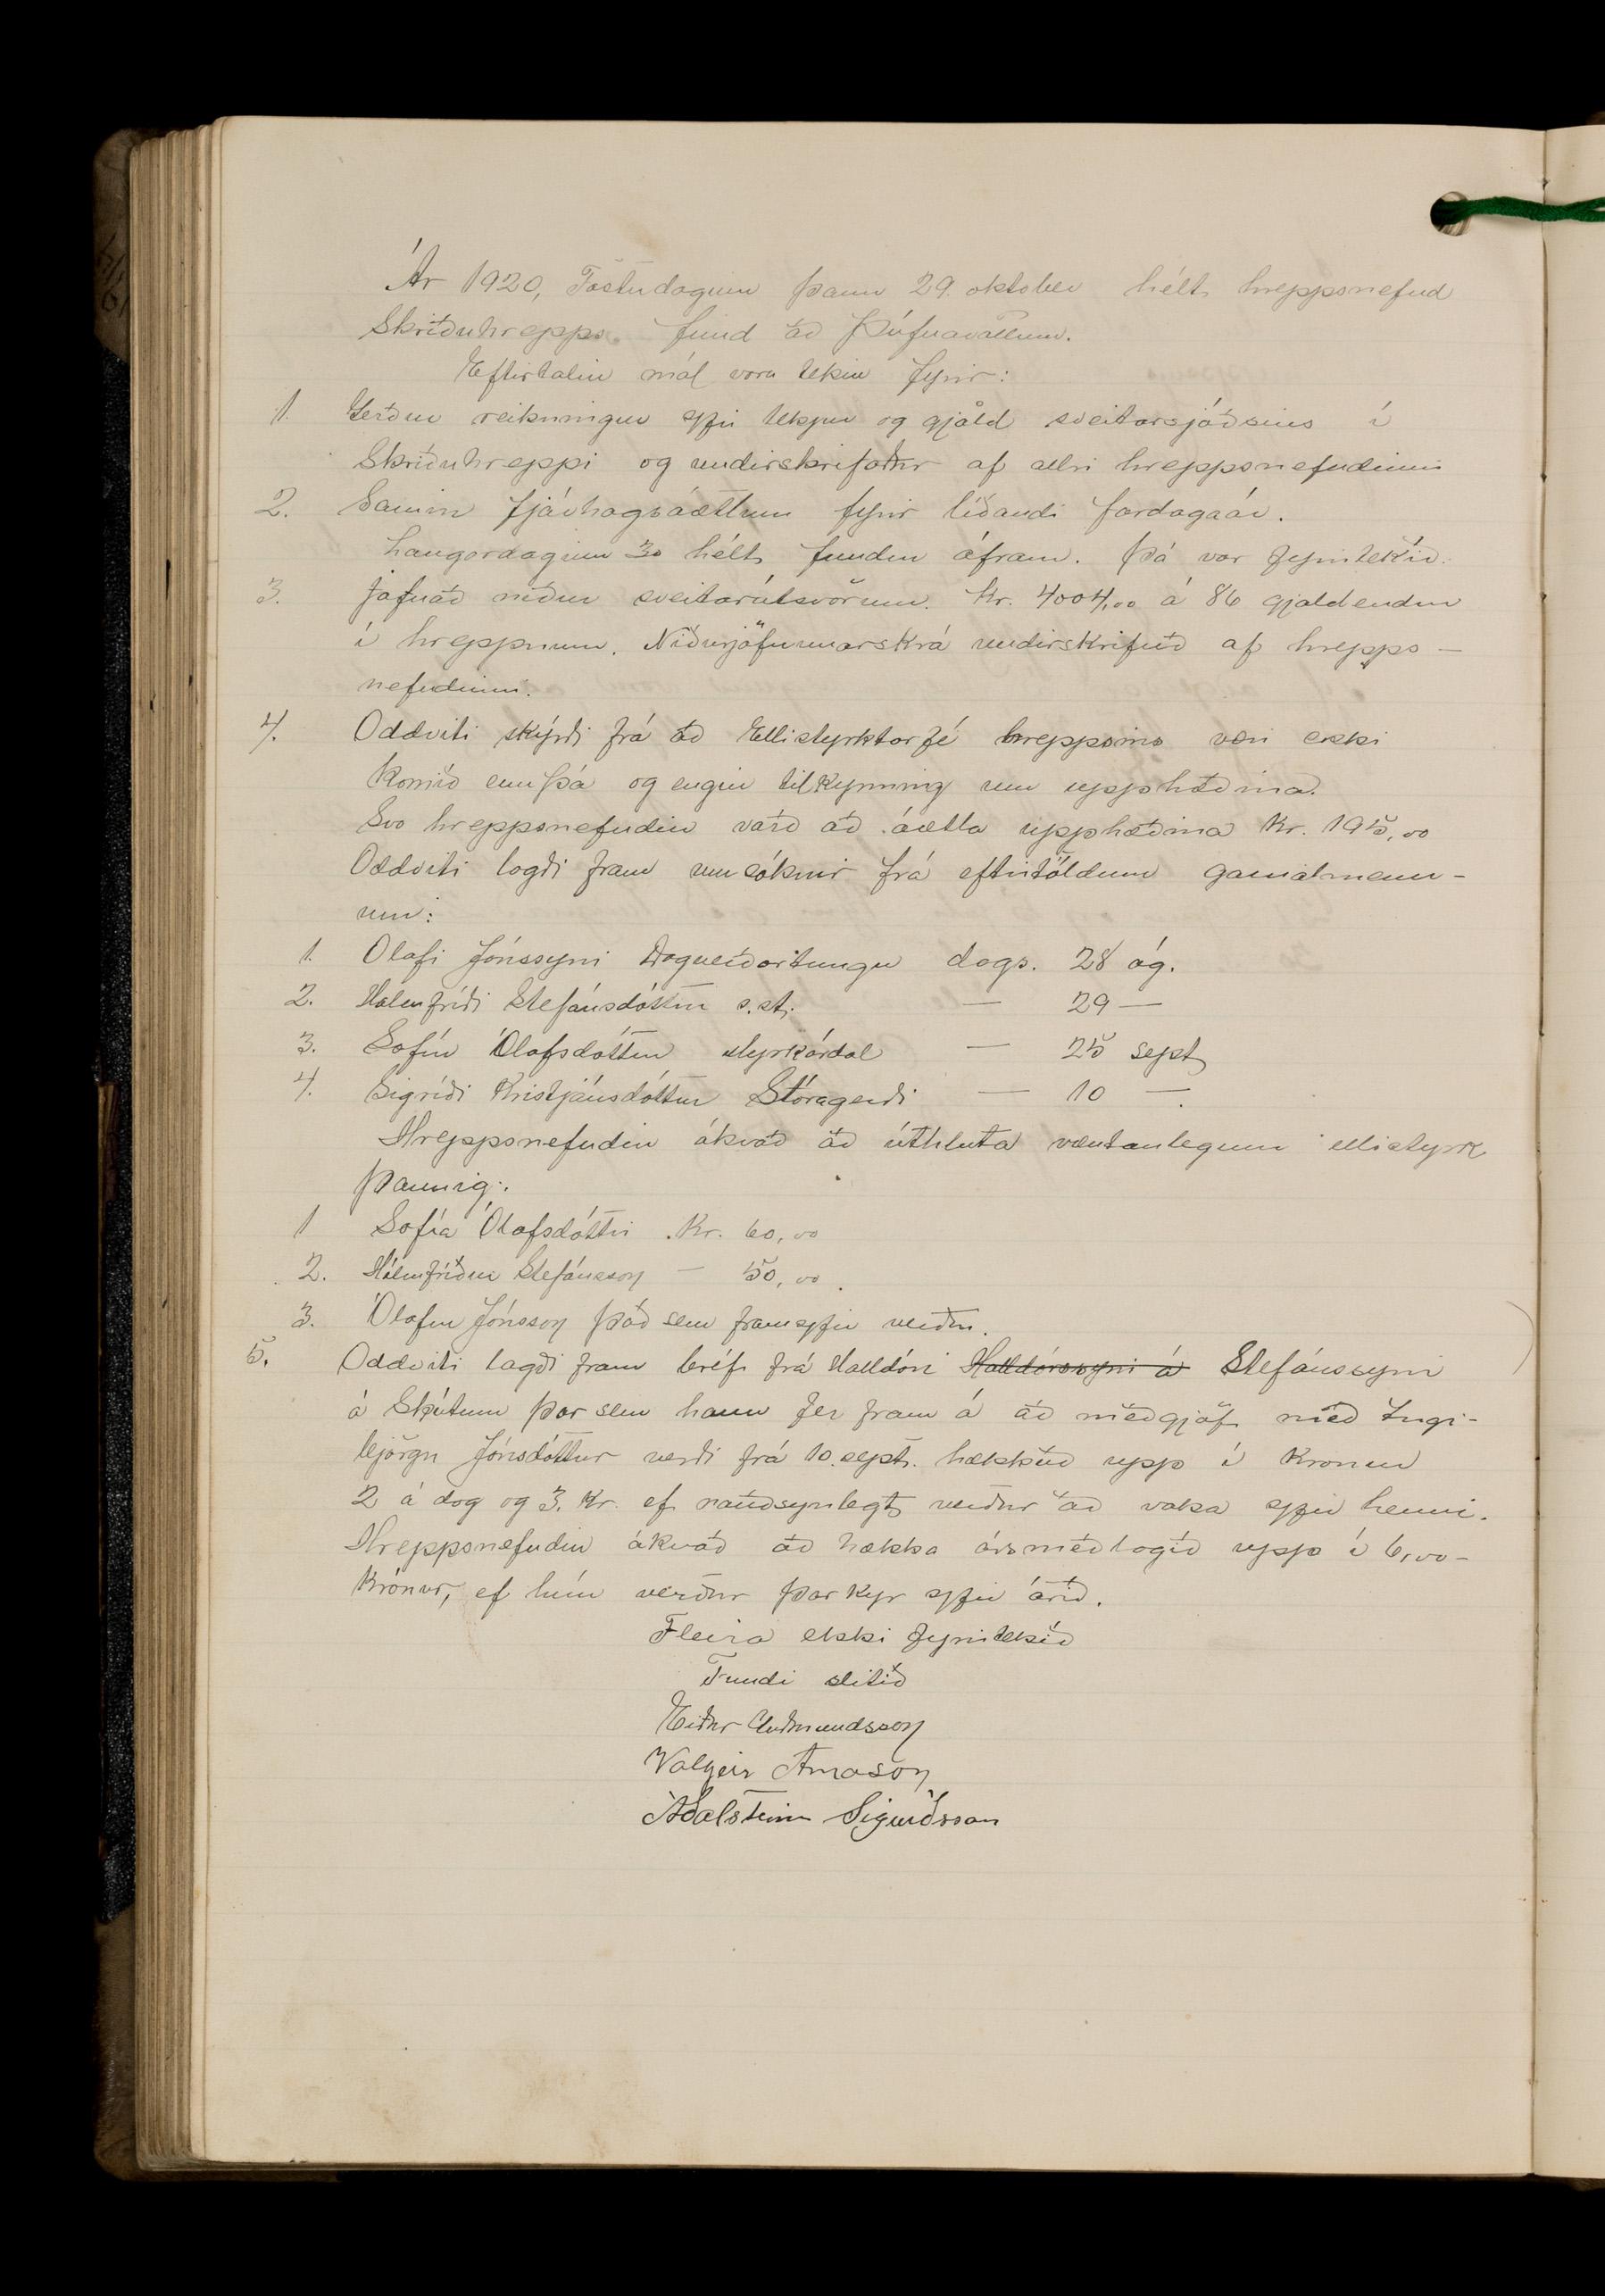 Ár 1920, Föstudaginn þann 29. október hélt hreppsnefnd
Skriðuhrepps fund að Þúfnavöllum.
Eftirtalin mál voru tekin fyrir:
1. Gerður reikningur yfir tekjur og gjöld sveitarsjóðsins í
Skriðuhreppi og undirskrifaður af allri hreppsnefndinni
2. Samin fjárhagsáætlun fyrir líðandi fardagaár.
Laugardaginn 30 hélt fundur áfram. Þá var fyrirtekið:
3. Jafnað niður sveitarútsvörum. Kr. 4004,00 á 86 gjaldendur
í hreppnum. Niðurjöfnunarskrá undirskrifuð af hrepps-
nefndinni.
4. Oddviti skýrði frá að Ellistyrktarfé hreppsins væri ekki
komið ennþá og engin tilkynning um upphæðina.
Svo hreppsnefndin varð að áætla upphæðina Kr. 195,00
Oddviti lagði fram umsóknir frá eftirtöldum gamalmenn-
um:
1. Olafi Jónssyni Dagverðartungu dags. 28 ág.
2. Hólmfríði Stefánsdóttur s.st. — 29 —
3. Sofíu Ólafsdóttur Myrkárdal — 25 sept
4. Sigríði Kristjánsdóttur Stóragerði — 10 —.
Hreppsnefndin ákvað að úthluta væntanlegum ellistyrk
þannig:
1 Sofía Ólafsdóttir Kr. 60,00
2. Hólmfríður Stefánsson — 50,00.
3. Ólafur Jónsson það sem framyfir verður.
5. Oddviti lagði fram bréf frá Halldóri Halldórssyni á Stefánssyni
á Skútum þar sem hann fer fram á að meðgjöf með Ingi-
björgu Jónsdóttur verði frá 10. sept. hækkuð upp í Kronur
2 á dag og 3. Kr. ef nauðsynlegt verður að vaka yfir henni.
Hreppsnefndin ákvað að hækka ársmeðlagið upp í 6,00-
Krónur, ef hún verður þar kyr yfir árið.
Fleira ekki fyrirtekið
Fundi slitið
Eiður Guðmundsson
Valgeir Arnason
Aðalsteinn Sigurðsson